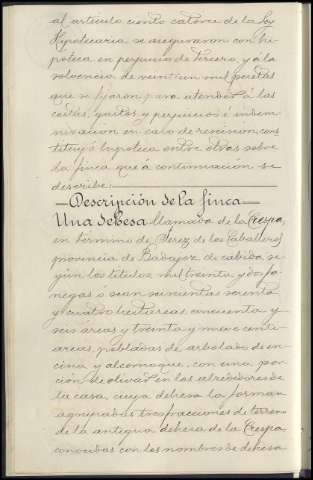 al artículo ciento catorce de la Ley
Hipotecaria se aseguraron con hi-
poteca en perjuicio de tercero, y á la
solvencia de veintiun mil pesetas
que se fijaron para atender á las
costas, gastos y perjuicios é indem-
nizacion en caso de rescision, cons
tituyó hipoteca entre otras sobre
la finca que á continuacion se
describe:
Descripción de la finca
Una dehesa llamada de la Crespa,
en termino de Jerez de los Caballeros
provincia de Badajoz de cabida se-
gún los titulos mil treinta y dos fa-
negas ó sean seiscientas sesenta
y cuatro hectáreas cincuenta y
seis areas y treinta y nueve centi-
areas, pobladas de arbolado de en-
cina y alcornoque, con una por-
ción de olivar en los alrededores de
la casa, cuya dehesa la forman
agrupadas tres fracciones de terreno
de la antigua dehesa de la Crespa
conocidas con los nombres de dehesa